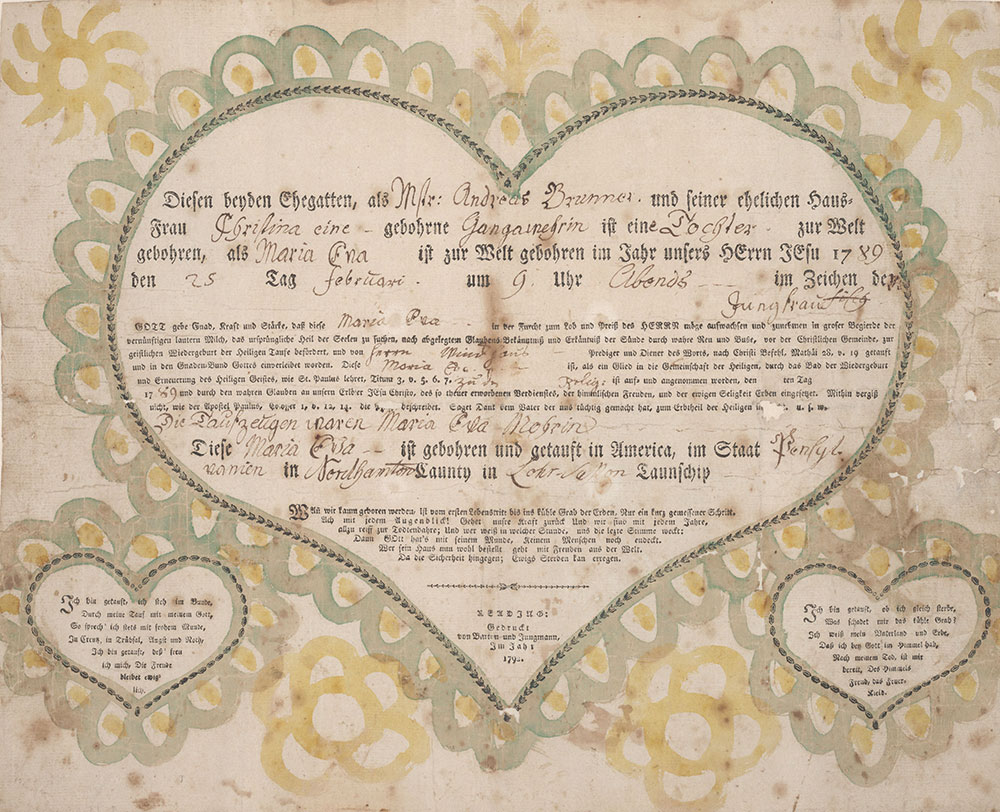 Diesen beyden Ehegatten, als Mstr: Andreas Brunner. und seiner ehelichen Haus-
Frau Christina eine gebohrne ist eine Tochter. zur Welt
gebohren, als Maria Eva ist zur Welt gebohren im Jahr unsers HErrn JEsu 1789
den 25 Tag februari. um 9. Uhr Abends im Zeichen der
Jungfrau
GOTT gebe Gnad, Kraft und Stärke, daß diese Maria Eva in der Furcht zum Lob und Preiß des HERRN möge aufwachsen und zunehmen in groser Begierde der
vernünftigen lautern Milch, das ursprüngliche Heil der Seelen zu suchen, nach abgelegtem Glaubens Bekäntniß und Erkäntniß der Sünde durch wahre Reu und Buße, vor der Christlichen Gemeinde, zur
geistlichen Wiedergeburt der Heiligen Taufe befördert, und von Herrn Prediger und Diener des Worts, nach Christi Befehl, Mathäi 28, v. 19 getauft
und in den Gnaden-Bund Gottes einverleibet worden. Diese Maria Eva ist, als ein Glied in die Gemeinschaft der Heiligen, durch das Bad der Wiedergeburt
und Erneuerung des Heiligen Geistes, wie St. Paulus lehret, Titum 3, v. 5. 6. 7. ist auf- und angenommen worden, den ten Tag
1789 und durch den wahren Glauben an unsern Erlöser JEsu Christo, des so theuer erworbenen Verdienstes, der himmlischen Freuden, und der ewigen Seligkeit Erben eingesetzet. Mithin vergiß
nicht, wie der Apostel Paulus, 1, v. 12, 14. die beschreibet. Saget Dank dem Vater der uns tüchtig gemacht hat, zum Erbtheil der Heiligen im u. s. w.
Die Taufzeugen waren Maria Eva
Diese Maria Eva ist gebohren und getauft in America, im Staat Pensyl
vanien in Nordhamton Caunty in Taunschip
Wañ wir kaum geboren werden, Ist vom ersten Lebenstrit bis ins kühle Grab der Erden, Nur ein kurz gemessener Schritt.
Ach mit jedem Augenblick! Gehet unsre Kraft zurück Und wir sind mit jedem Jahre,
allzu reiff zur Todtenbahre; Und wer weiß in welcher Stunde uns die lezte Stimme weckt:
Dann GOtt hat's mit seinem Munde, Keinem Menschen noch endeckt.
Wer sein Haus nun wohl bestellt geht mit Freuden aus der Welt.
Da die Sicherheit hingegen; Ewigs Sterben kan erregen.
READING:
Gedruckt
von Barton und Jungmann,
Im Jahr
1792.
Ich bin getauft, ich steh im Bunde,
Durch meine Tauf mit meinem Gott,
So sprech' ich stets mit frohem Munde,
In Creutz, in Trübsal, Angst und Noth,
Ich bin getauft, deß' freu
ich mich, Die Freude
bleibet ewig'
lich.
Ich bin getauft, ob ich gleich sterbe,
Was schadet mir das kühle Grab?
Ich weiß mein Vaterland und Erbe,
Daß ich bey Gott im Himmel hab,
Nach meinem Tod, ist mir
bereit, Des Himmels
Freud, das Feyer-
Kleid.